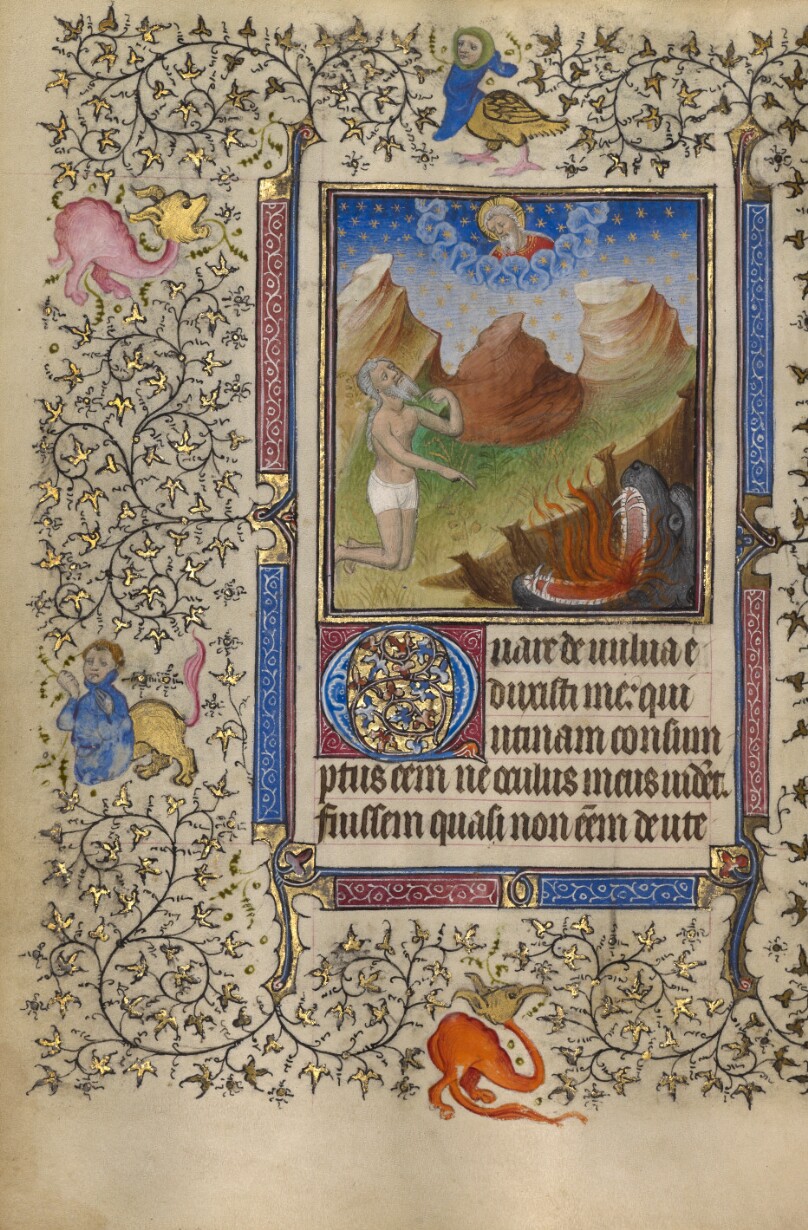 Quare de uulua e
duxisti me: qui
utinam consum
ptus eēm ne oculus meus uidēt.
fuissem quasi non eēm de ute